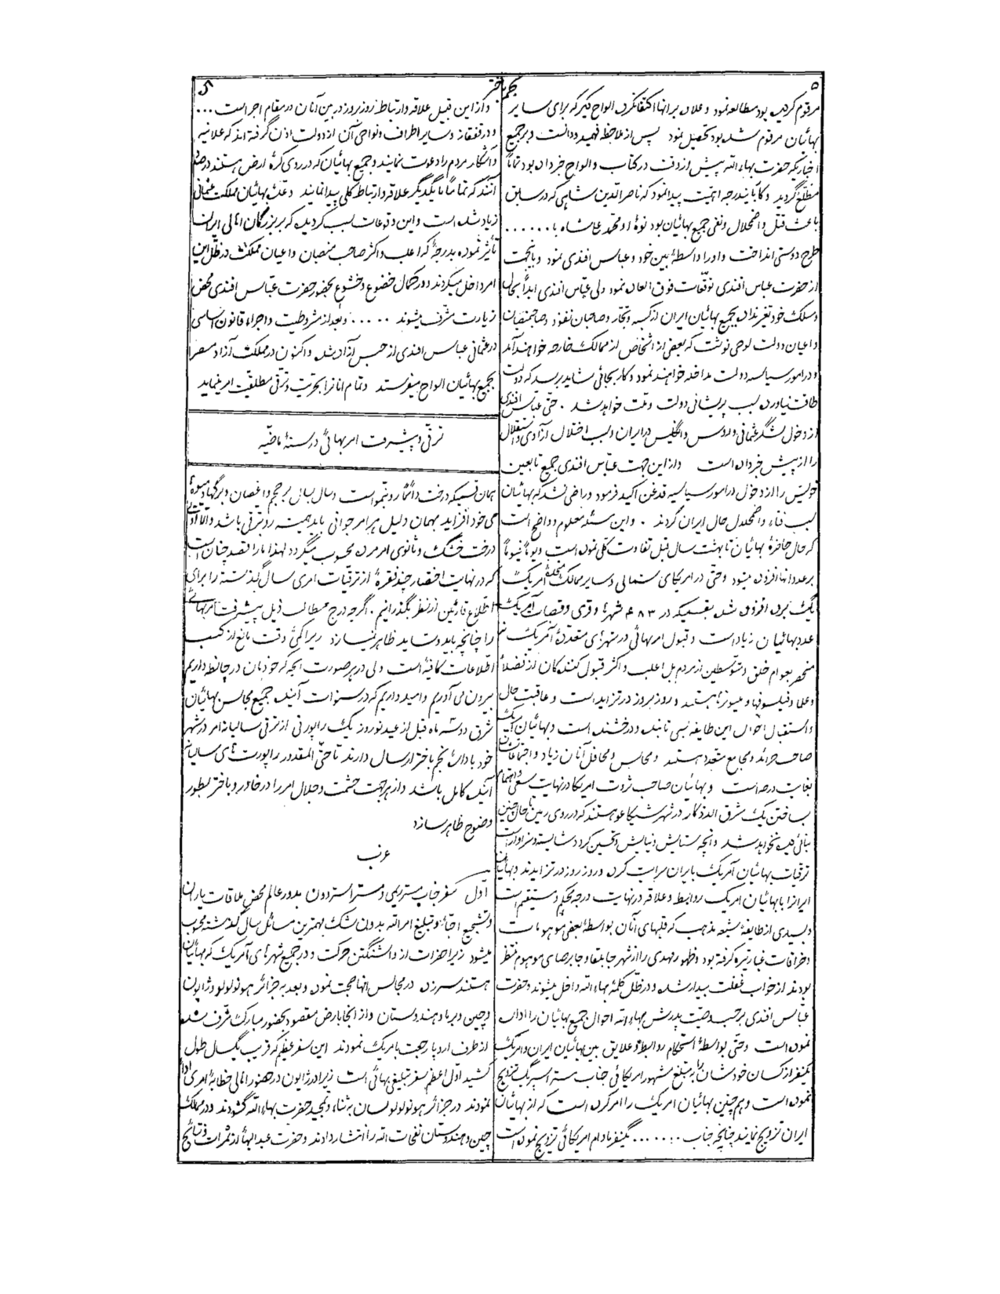 ۵
نجم باختر
مرقوم گردیده بود مطالعه نمود و علاوه بر آنها اکتفا نکرده الواح دیگر که برای سایر
بهائیان مرقوم شده بود تحصیل نمود پس از ملاحظه فهمید و دانست و بر جمیع
اخباریکه حضرت بهاءالله پیش از وقت در کتاب و الواح خبر داده بود تماماً
مطلع گردید و کار بایندرجه اهمیت پیدا نمود که ناصرالدین شاهی که در سابق
باعث قتل و اضمحلال و نفی جمیع بهائیان بود نوهٔ او محمد علیشاه با . . . . . .
طرح دوستی انداخت و او را واسطهٔ بین خود و عباس افندی نمود و باینجهت
از حضرت عباس افندی توقعات فوق العاده نمود ولی عباس افندی ابداً بحال
و مسلک خود تغیر نداده بجمیع بهائیان ایران از کسبه و تجار و صاحبان نفوذ و صاحبمنصبان
و اعیان دولت لوحی نوشت که بعضی از اشخاص از ممالک خارجه خواهند آمد
و در امور سیاسیه دولت مداخله خواهند نمود و کار بجائی شاید برسد که دولت
طاقت نیاورده سبب پریشانی دولت و ملت خواهد شد . حتی عباس افندی
از دخول لشگر عثمانی و روس و انگلیس در ایران و سبب اختلال آزادی و استقلال
را از پیش خبر داده است و از این جهت عباس افندی جمیع تابعین
خویش را از دخول در امور سیاسیه قدغن اکید فرمود و راضی نشد که بهائیان
سبب فناء و اضمحلال حال ایران گردند . و این مسئله معلوم و واضح است
که حال حاضرهٔ بهائیان تا بهشت سال قبل تفاوت کلی نموده است و یوماً فیوماً
بر عدد آنها افزوده میشود و حتی در امریکای شمالی و سایر ممالک مختلفهٔ امریک
عدد بهائیان زیاد است و قبول امر بهائی در شهرهای متعددهٔ آمریک نه
منحصر بعوام خلق و متوسطین از مردم بل اغلب و اکثر قبول کنندگان از فضلاء
و علماء و فیلسوفها و هستند و روز بروز در تزاید است و عاقبت حال
و استقبال احوال این طایفه بسی تابنده و درخشنده است و بهائیان آمریک
صاحب جرائد و مجامع متعدد هستند و مجالس و محافل آنان زیاد و اجتماعات
بغایت درجه است و بهائیان صاحب ثروت امریکا در نهایت سعی و اهتمام
بساختن یک مشرق الاذکار در شهر شیکاغو هستند که در روی زمین تا بحال چنین
بنائی دیده نخواهد شد و آنچه ستایش و نیایش و تحسین کردد شایسته و سزاوار است
ترقیات بهائیان آمریک بایران سرایت کرده و روز بروز در تزایدند و بهائیان
ایران را با بهائیان امریک روابط و علاقه در نهایت درجه محکم و مستقیم است
و بسیاری از طایفهٔ شیعه مذهب که قلبهای آنان بواسطهٔ بعضی موهومات
و خرافات غبار تیره گرفته بود و ظهور مهدی را از شهر جابلقا و جابرصای موهوم منتظر
بودند از خواب غفلت بیدار شده و در ظل کلمهٔ بهاءالله داخل میشوند و حضرت
عباس افندی بر حسب وصیت پدرش بهاءالله احوال جمیع بهائیان را اداره
نموده است و حتی بواسطهٔ استحکام روابط و علایق بین بهائیان ایران و امریک
یکنفر از کسان خودشان را بمبلغ مشهور امریکائی جناب مستر اسپریگ تزویج
نموده است و هم چنین بهائیان امریک را امر کرده است که از بهائیان
ایران تزویج نمایند چنانچه جناب . . . . . . . یکنفر مادام امریکائی تزویج نموده است
و از این قبیل علاقه و ارتباط روز بروز در بین آنان در مقام اجرا است . . .
و در قفقاز و سایر اطراف و نواحی آن از دولت اذن گرفته اند که علانیه
و آشکار مردم را دعوت نمایند و جمیع بهائیان که در روی کرهٔ ارض هستند در صدد
آنند که تماماً با یکدیگر علاقه و ارتباط کلی پیدا نمایند و عدد بهائیان مملکت عثمانی
زیاد شده است و این وقوعات سبب گردیده که بر بزرگان اهالی ایران
تأثیر نموده بدرجهٔ که اغلب و اکثر صاحب منصبان و اعیان مملکت در ظل این
امر داخل میگردند و در کمال خضوع و خشوع بحضور حضرت عباس افندی محض
زیارت مشرف میشوند . . . . . و بعد از مشروطیت و اجراء قانون اساسی
در عثمانی عباس افندی از حبس آزاد شد و اکنون در مملکت آزاد مصر
بجمیع بهائیان الواح میفرستد و تمام آنانرا بحریت و ترقی مطلقیت امر مینماید
ترقی و پیشرفت امر بهائی در سنهٔ ماضیه
همان قسمیکه درخت دائماً رو بنمو است و سال بسال بر حجم و اغصان و برگها و میوهٔ
می خود افزاید بهمان دلیل هر امر جوانی باید همیشه رو بترقی باشد و الا آن
درخت خشک و ثانوی امر مرده محسوب میگردد لهذا ما را قصد چنان است
که در نهایت اختصار چند فقرهٔ از ترقیات امری سال گذشته را برای
اطلاع قارئین از نظر بگذرانیم . اگرچه درج مطالب ذیل پیشرفت امر بهائی
را چنانچه باید و شاید ظاهر نسازد زیرا کمی وقت مانع از کسب
اطلاعات کافیه است ولی در هر صورت آنچه که خودمان در حافظه داریم
بیرون می آوریم و امید داریم که در سنوات آتیه جمیع مجالس بهائیان
شرق دو سه ماه قبل از عید نوروز یک راپورتی از ترقی سالیانهٔ امر در شهر
خود بادارهٔ نجم باختر ارسال دارند تا حتی المقدور راپورت های سالیانه
آتیه کامل باشد و از هر جهت حشمت و جلال امر را در خاور و باختر بطور
وضوح ظاهر سازد
غرب
اول سفر جناب مستر ریمی و مستر استرودن بدور عالم محض ملاقات یاران
و تشجیع احباء و تبلیغ امرالله بدون شک اهمترین مسائل سال گذشته محسوب
میشود زیرا حضرات از واشنگتن حرکت و در جمیع شهرهای آمریک که بهائیان
هستند سر زده در مجالس آنها صحبت نموده و بعد به جزائر هونولولو و ژاپون
و چین و برما و هندوستان و از آنجا بارض مقصود بحضور مبارک مشرف شده
از طرف اروپا رجعت بامریک نمودند این سفر عظیم که قریب یکسال طول
کشید اول اعظم سفر تبلیغی بهائی است زیرا در ژاپون در حضور اهالی خطابهٔ امری ادا
نمودند در جزائر هونولولو لسان به ثناء و تمجید حضرت بهاءالله گشودند و در مملکت
چین و هندوستان نفحات الله را انتشار دادند و حضرت عبدالبهاء از ثمرات و نتایج